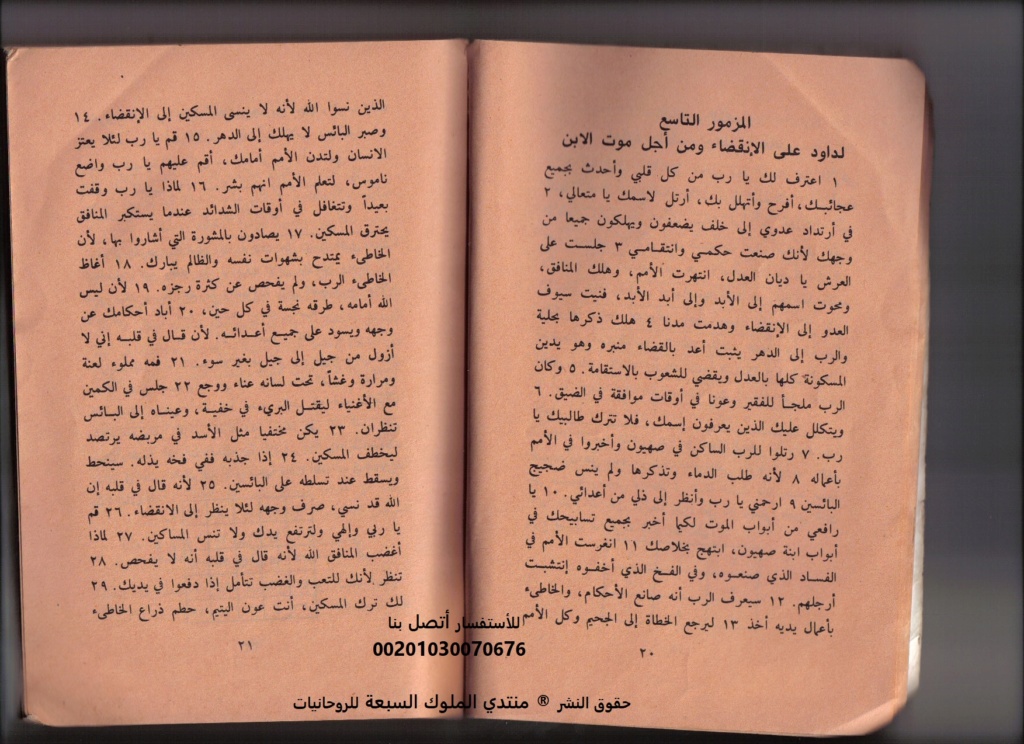 المزمور التاسع
لداود على الإنقضاء ومن أجل موت الابن
١ اعترف لك يا رب من كل قلبي وأحدث بجميع
عجائبك، أفرح وأتهلل بك، أرتل لاسمك يا متعالي، ٢
في أرتداد عدوي إلى خلف يضعفون ويهلكون جميعا من
وجهك لأنك صنعت حكمي وانتقامي ٣ جلست على
العرش يا ديان العدل، انتهرت الأمم، وهلك المنافق،
ومحوت اسمهم إلى الأبد وإلى أبد الأبد، فنيت سيوف
العدو إلى الإنقضاء وهدمت مدنا ٤ هلك ذكرها بجلبة
والرب إلى الدهر يثبت أعد بالقضاء منبره وهو يدين
المسكونة كلها بالعدل ويقضي للشعوب بالاستقامة. ٥ وكان
الرب ملجأ للفقير وعونا في أوقات موافقة في الضيق. ٦
ويتكلل عليك الذين يعرفون إسمك، فلا تترك طالبيك يا
رب. ٧ رتلوا للرب الساكن في صهيون وأخبروا في الأمم
بأعماله ٨ لأنه طلب الدماء وتذكرها ولم ينس ضجيج
البائسين ٩ ارحمني يا رب وأنظر إلى ذلي من أعدائي. ١٠ يا
رافعي من أبواب الموت لكيما أخبر بجميع تسابيحك في
أبواب ابنة صهيون، ابتهج بخلاصك ١١ انغرست الأمم في
الفساد الذي صنعوه، وفي الفخ الذي أخفوه إنتشبت
أرجلهم. ١٢ سيعرف الرب أنه صانع الأحكام، والخاطىء
بأعمال يديه أخذ ١٣ ليرجع الخطاة إلى الجحيم وكل الأمم
٢٠
الذين نسوا الله لأنه لا ينسى المسكين إلى الإنقضاء. ١٤
وصبر البائس لا يهلك إلى الدهر. ١٥ قم يا رب لئلا يعتز
الانسان ولتدن الأمم أمامك، أقم عليهم يا رب واضع
ناموس، لتعلم الأمم انهم بشر. ١٦ لماذا يا رب وقفت
بعيداً وتتغافل في أوقات الشدائد عندما يستكبر المنافق
يحترق المسكين. ١٧ يصادون بالمشورة التي أشاروا بها، لأن
الخاطىء يمتدح بشهوات نفسه والظالم يبارك. ١٨ أغاظ
الخاطىء الرب، ولم يفحص عن كثرة رجزه. ١٩ لأن ليس
الله أمامه، طرقه نجسة في كل حين، ٢٠ أباد أحكامك عن
وجهه ويسود على جميع أعدائه. لأن قال في قلبه إني لا
أزول من جيل إلى جيل بغير سوء. ٢١ فمه مملوء لعنة
ومرارة وغشاً، تحت لسانه عناء ووجع ٢٢ جلس في الكمين
مع الأغنياء ليقتل البريء في خفية، وعيناه إلى البائس
تنظران. ٢٣ يكن مختفيا مثل الأسد في مربضه يرتصد
ليخطف المسكين. ٢٤ إذا جذبه ففي فخه يذله. سينحط
ويسقط عند تسلطه على البائسين. ٢٥ لأنه قال في قلبه إن
الله قد نسي، صرف وجهه لئلا ينظر إلى الانقضاء. ٢٦ قم
يا ربي وإلهي ولترتفع يدك ولا تنس المساكين. ٢٧ لماذا
أغضب المنافق الله لأنه قال في قلبه أنه لا يفحص. ٢٨
تنظر لأنك للتعب والغضب تتأمل إذا دفعوا في يديك. ٢٩
لك ترك المسكين، أنت عون اليتيم، حطم ذراع الخاطىء
٢١
للأستفسار أتصل بنا
00201030070676
حقوق النشر ® منتدي الملوك السبعة للروحانيات